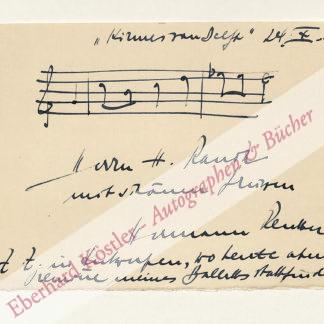 "Kirmes von Delft" 24. X.
Herrn H. Rauch
mit schönen Grüssen
Hermann Reutter
z. Z. in Antwerpen, wo heute aben
premiere meines Balletts stattfind
Eberhard Köstler - Autographen & Bücher